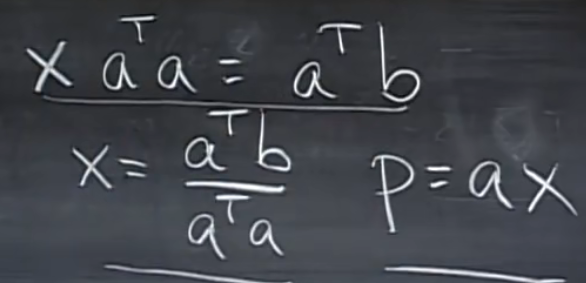 x aᵀa = aᵀb
x = aᵀb / aᵀa    p = ax